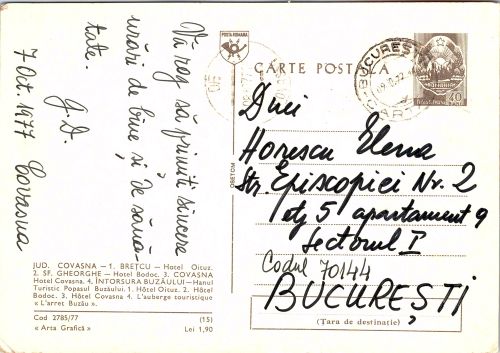 Vă rog să primiți sincere
urări de bine și de sănă-
tate.
G.D.
7 Oct. 1977 Covasna
POSTA ROMANA
CARTE POSTALA
BUCUREȘTI
40
Dnei
Horescu Elena
Str. Episcopiei Nr. 2
etj 5 apartament 9
Sectorul I
Codul 70144
BUCUREȘTI
(Țara de destinație)
JUD. COVASNA — 1. BREȚCU — Hotel Oituz.
2. SF. GHEORGHE — Hotel Bodoc. 3. COVASNA
Hotel Covasna. 4. ÎNTORSURA BUZĂULUI — Hanul
Turistic Popasul Buzăului. 1. Hôtel Oituz. 2. Hôtel
Bodoc. 3. Hôtel Covasna 4. L'auberge touristique
« L'arret Buzău ».
Cod 2785/77 (15)
« Arta Grafică » Lei 1,90